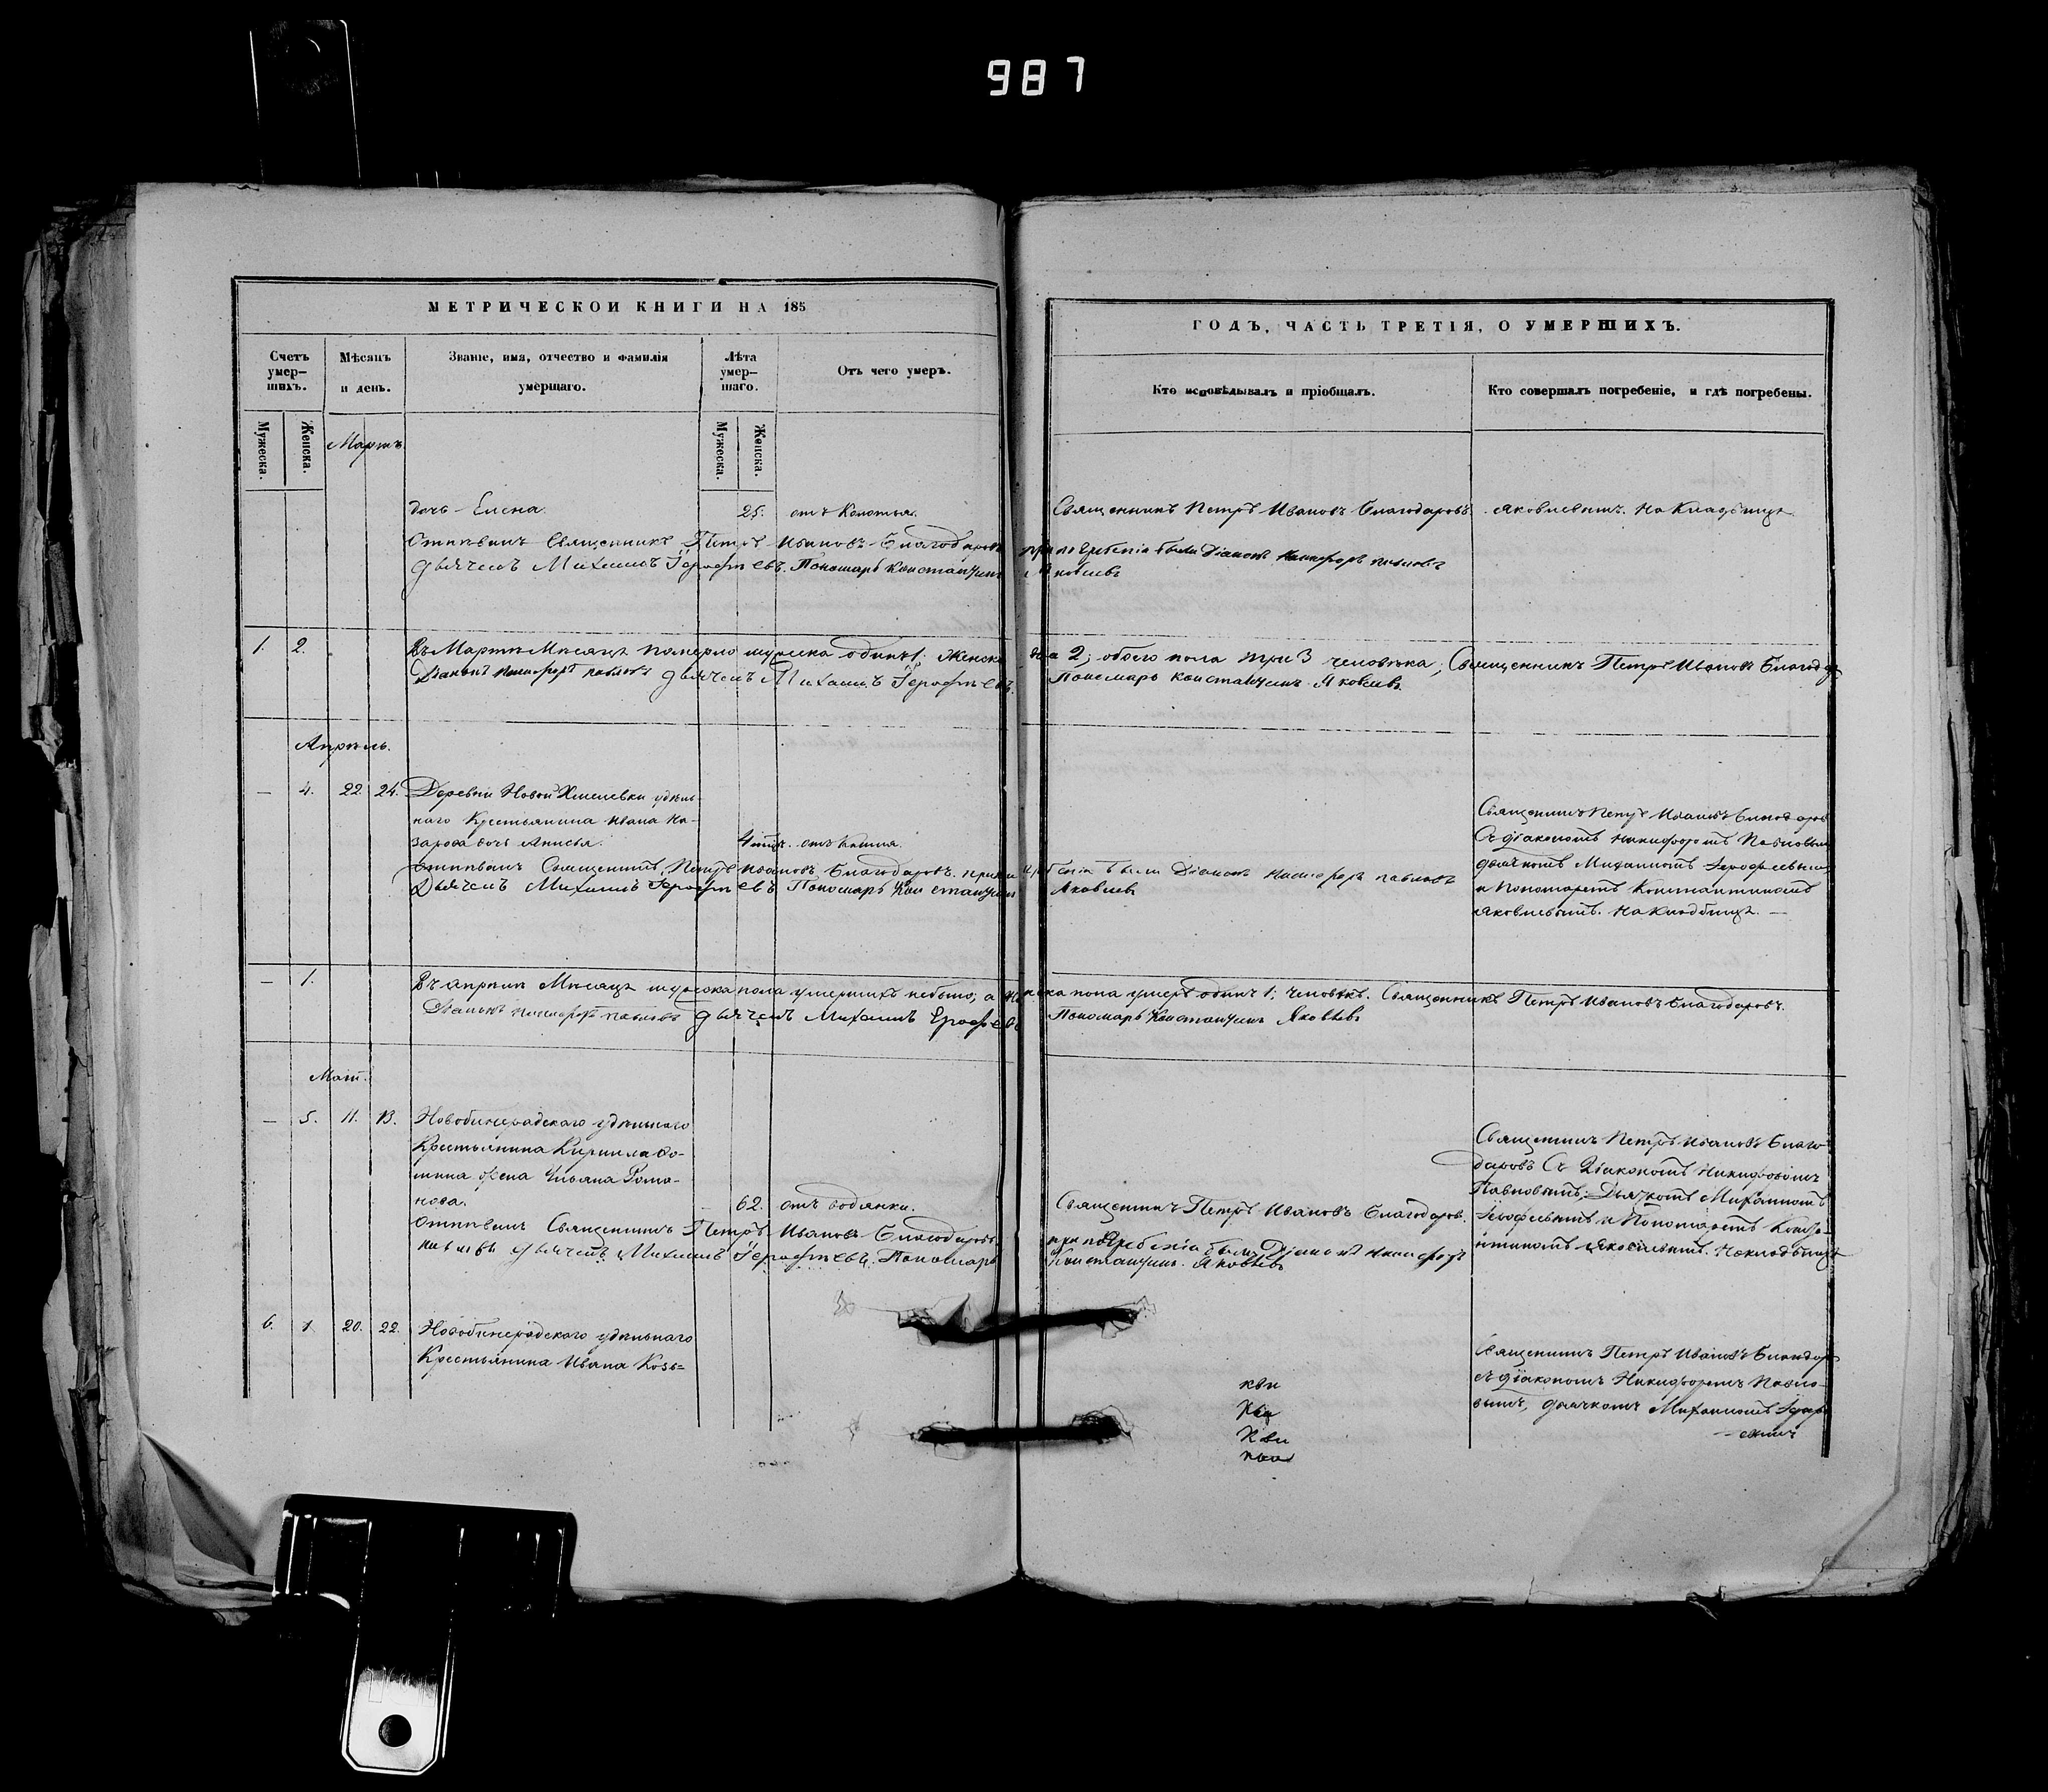 987
МЕТРИЧЕСКОЙ КНИГИ НА 185
ГОДЪ, ЧАСТЬ ТРЕТІЯ, О УМЕРШИХЪ.
Счетъ умер-шихъ.
Мѣсяцъ и день.
Званіе, имя, отчество и фамилія умершаго.
Лѣта умер-шаго.
Отъ чего умеръ.
Кто исповѣдывалъ и пріобщалъ.
Кто совершалъ погребеніе, и гдѣ погребены.
Мужеска.
Женска.
Мужеска.
Женска.
Мартъ
дочь Елена.
25.
отъ Колотья.
Священникъ Петръ Ивановъ Благодаровъ.
Яковлевымъ. На Кладбищѣ
Отпѣвалъ Священникъ Петръ Ивановъ Благодаровъ при погребеніи были Діаконъ Никифоръ Павловъ
Дьячекъ Михаилъ Іерофѣевъ. Пономарь Константинъ Яковлевъ
1. 2.
Въ Мартѣ Мѣсяцѣ померло мужеска одинъ 1. Женска два 2; обоего пола три 3 человѣка; Священникъ Петръ Ивановъ Благодар
Діаконъ Никифоръ Павловъ Дьячекъ Михаилъ Іерофѣевъ. Пономарь Константинъ Яковлевъ.
Апрѣль.
— 4. 22. 24.
Деревни Новой Хмелевки удѣль-
наго Крестьянина Ивана На-
зарова дочь Анисья.
отъ Кашля.
Священникъ Петръ Ивановъ Благодаров
Съ діакономъ Никифоромъ Павловым
дьячкомъ Михаиломъ Іерофѣевымъ
и Пономаремъ Константиномъ
Яковлевымъ. На Кладбищѣ. —
Отпѣвалъ Священникъ Петръ Ивановъ Благодаровъ. при погребеніи были Діаконъ Никифоръ Павловъ
Дьячекъ Михаилъ Іерофѣевъ Пономарь Константинъ Яковлев
— 1.
Въ апрѣлѣ Мѣсяцѣ мужеска пола умершихъ небыло, а женска пола умеръ одинъ 1; человѣкъ. Священникъ Петръ Ивановъ Благодаровъ.
Діаконъ Никифоръ Павловъ Дьячекъ Михаилъ Ерофѣевъ Пономарь Константинъ Яковлевъ
Май.
— 5. 11. 13.
Новобинерадскаго удѣльнаго
Крестьянина Кирилла Фо-
мина жена Ульяна Рома-
нова.
62. отъ водянки.
Священникъ Петръ Ивановъ Благодаров.
Священникъ Петръ Ивановъ Благо-
даровъ Съ Діакономъ Никифоромъ
Павловымъ, Дьячкомъ Михаиломъ
Іерофѣевымъ и Пономаремъ Конста-
нтиномъ Яковлевымъ. На кладбищѣ
Отпѣвалъ Священникъ Петръ Ивановъ Благодаровъ при погребеніи были Діаконъ Никифоръ
Павловъ Дьячекъ Михаилъ Іерофѣевъ. Пономарь Константинъ. Яковлевъ
6. 1 20. 22.
Новобинерадскаго удѣльнаго
Крестьянина Ивана Козь=
Священникъ Петръ Ивановъ Благодар
съ діакономъ Никифоромъ Павло-
вымъ, дьячкомъ Михаиломъ Іероф